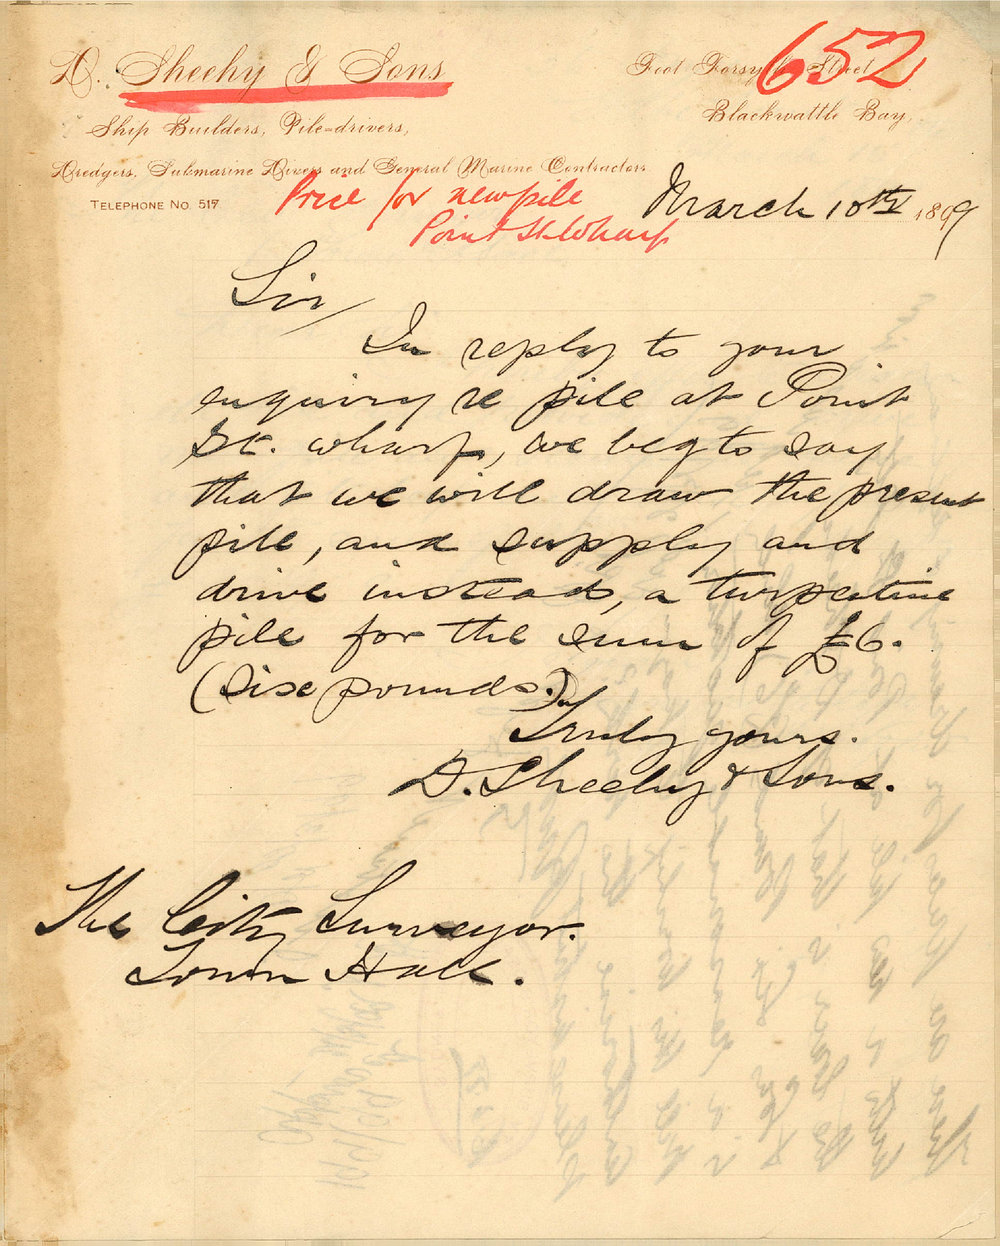 D. Sheehy & Sons
Foot Forsyth Street
652
Blackwattle Bay,
Ship Builders, Pile-drivers,
Dredgers, Submarine Divers and General Marine Contractors
TELEPHONE No. 517
Price for new pile
Point St. Wharf
March 10th 1899
Sir/
In reply to your
enquiry re pile at Point
St. wharf, we beg to say
that we will draw the present
pile, and supply and
drive instead, a turpentine
pile for the sum of £6.
(Six pounds.)
Truly yours.
D. Sheehy & Sons.
The City Surveyor.
Town Hall.